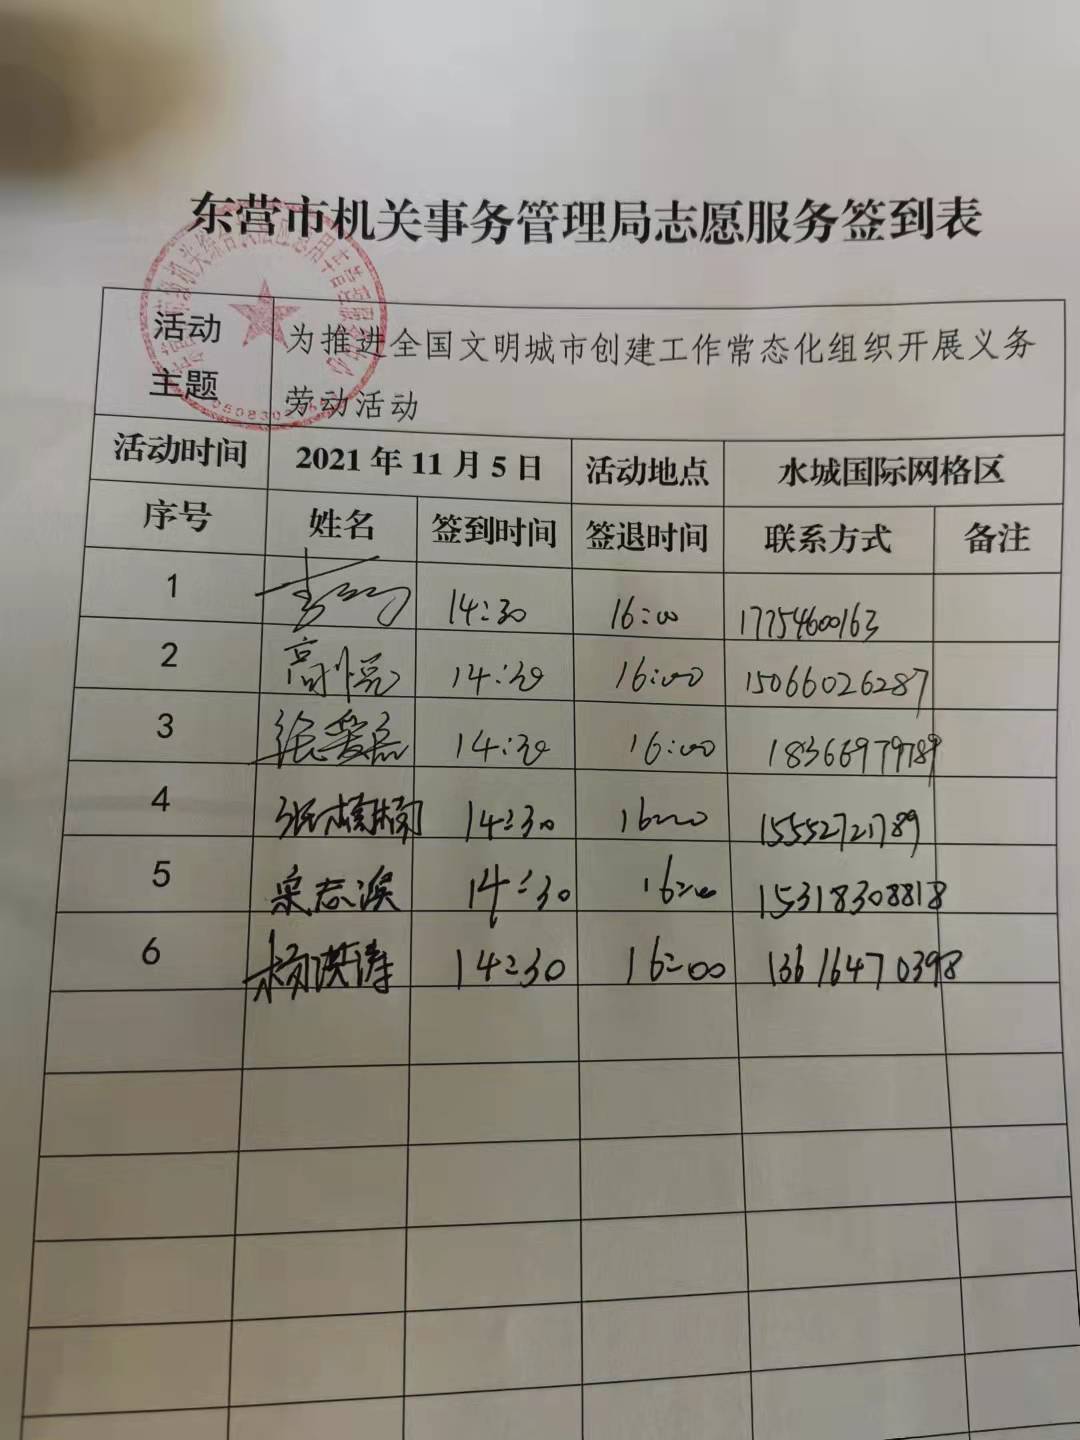 东营市机关事务管理局志愿服务签到表
活动主题 为推进全国文明城市创建工作常态化组织开展义务
劳动活动
活动时间 2021年11月5日 活动地点 水城国际网格区
序号 姓名 签到时间 签退时间 联系方式 备注
1 14:30 16:00 17754600163
2 高悦 14:30 16:00 15066026287
3 张爱 14:30 16:00 18366979789
4 张楠楠 14:30 16:00 15552721789
5 宋志滨 14:30 16:00 15318308818
6 杨洪涛 14:30 16:00 13616470398